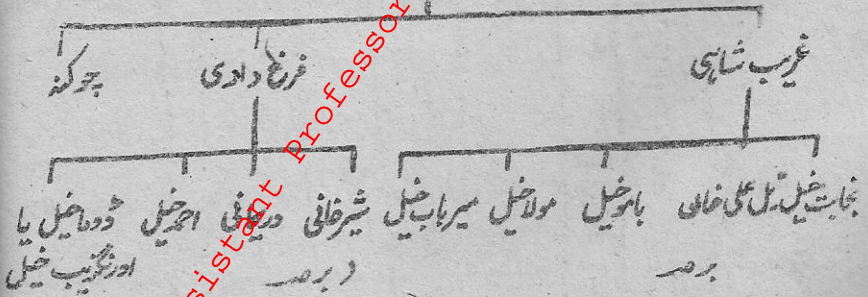 غریب شاہی فرخ دادی چوکنہ
نجابت خیل علی خانی باہو خیل مولا خیل میرباب خیل شیرخانی دریاخانی احمد خیل ڈوما خیل یا
برمد اورنگزیب خیل
Assistant Professor